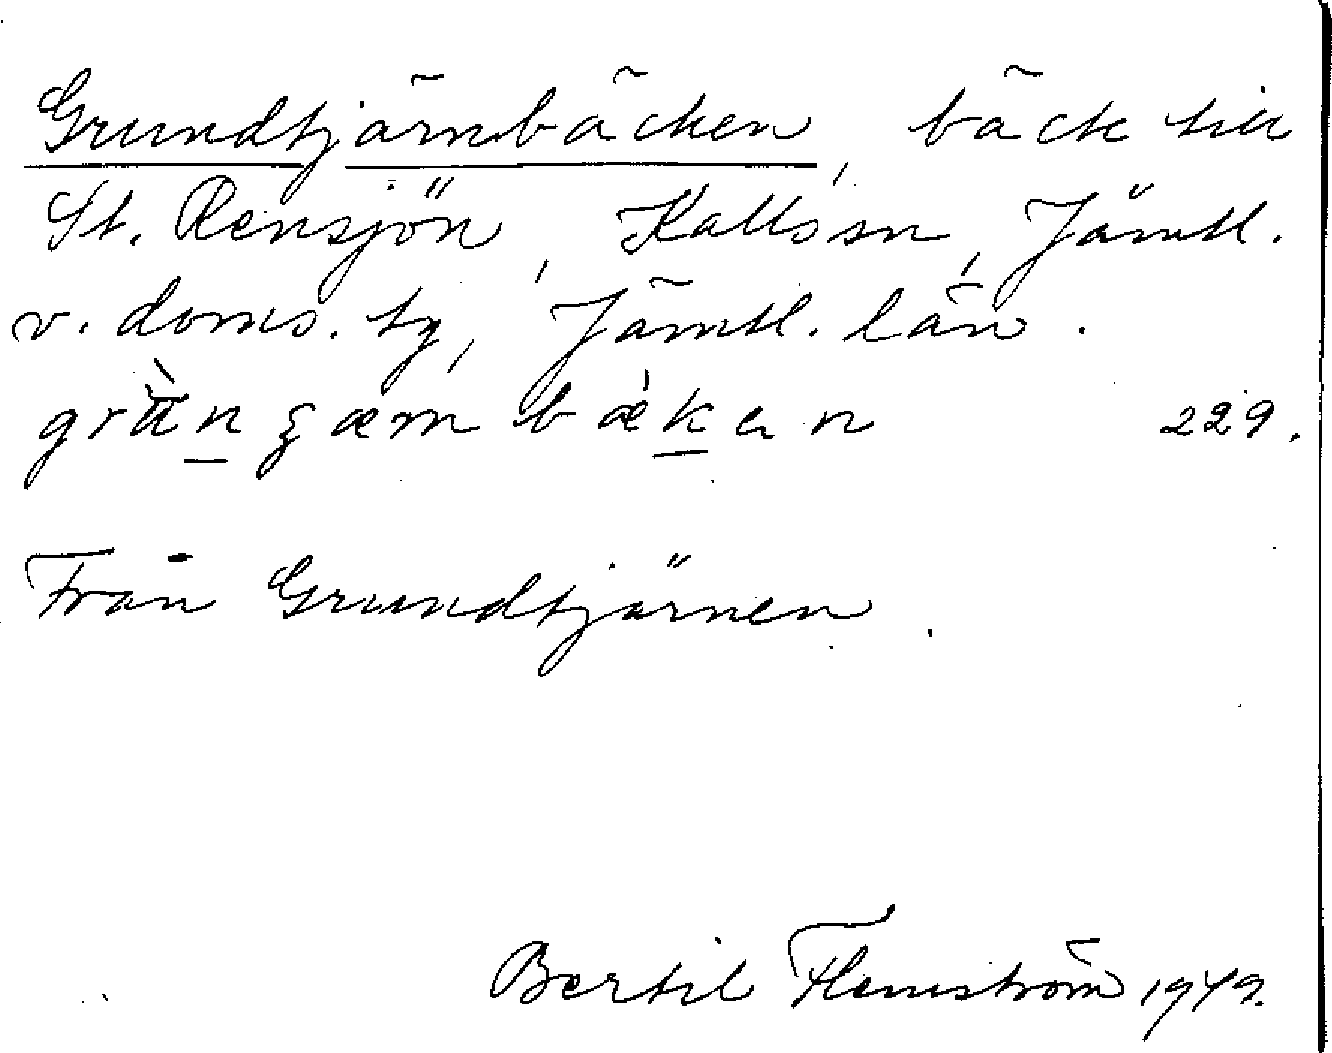 Grundtjärnbäcken, bäck till
St. Rensjön, Kalls sn, Jämtl.
v. doms. tg, Jämtl. län.
bækan 229.
Från Grundtjärnen.
Bertil Flemström 1949.